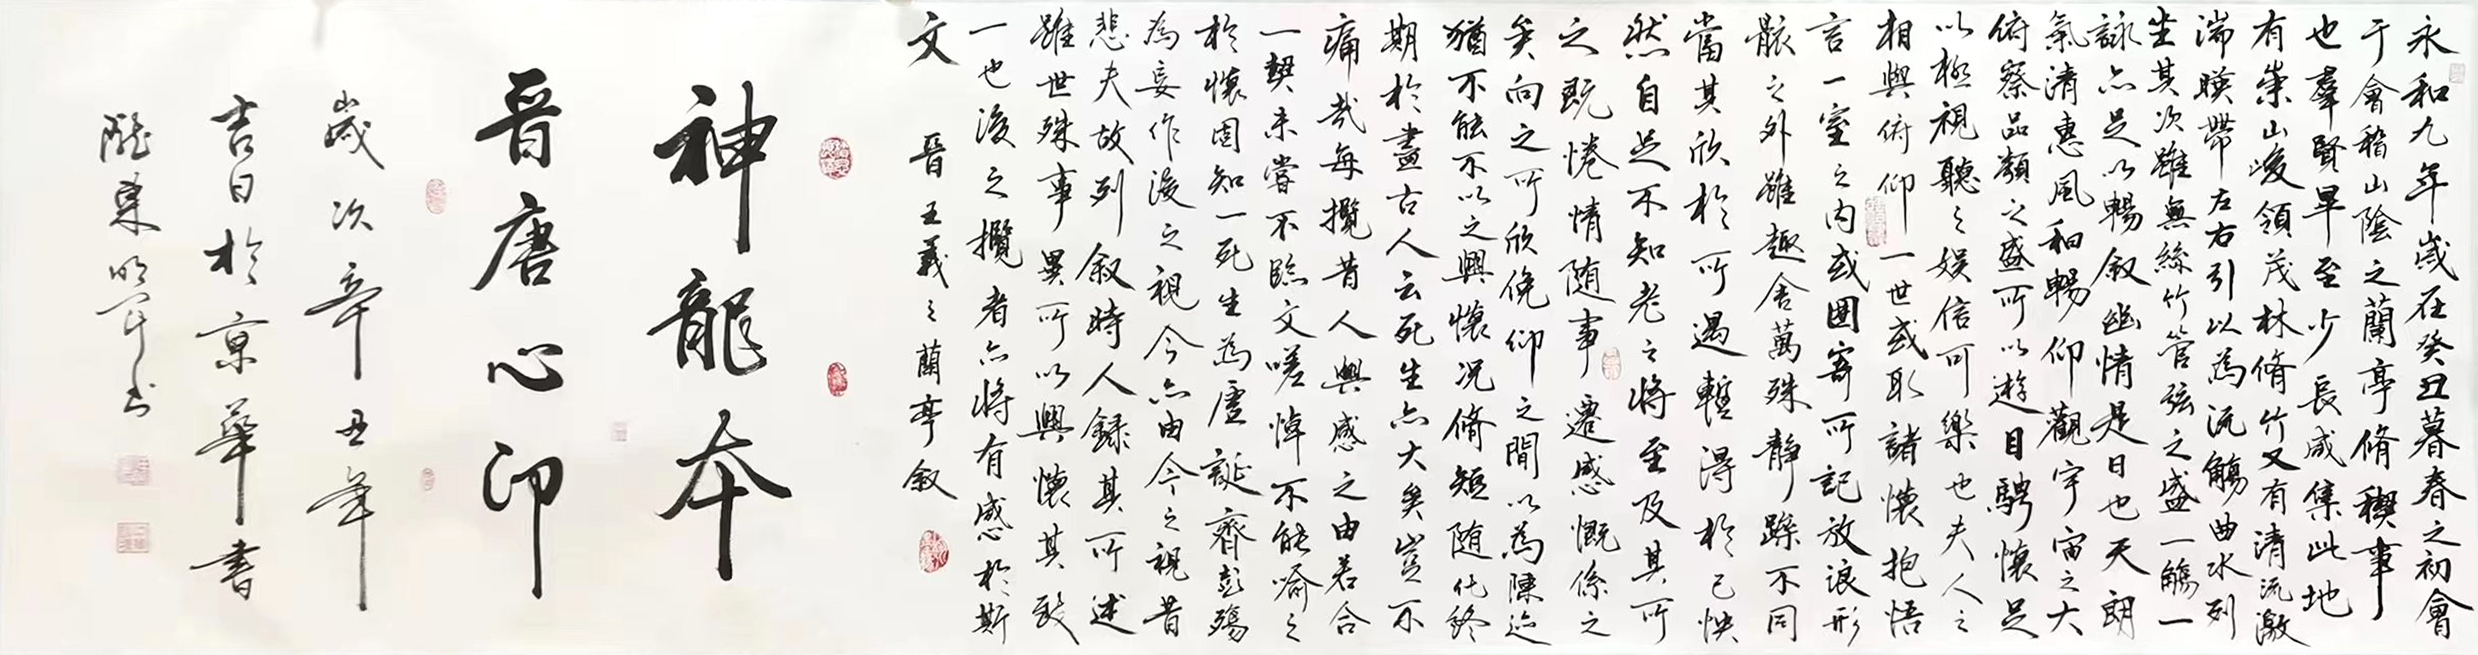 永和九年歲在癸丑暮春之初會
于會稽山陰之蘭亭脩稧事
也羣賢畢至少長咸集此地
有崇山峻領茂林脩竹又有清流激
湍暎帶左右引以為流觴曲水列
坐其次雖無絲竹管弦之盛一觴一
詠亦足以暢叙幽情是日也天朗
氣清惠風和暢仰觀宇宙之大
俯察品類之盛所以遊目騁懷足
以極視聽之娛信可樂也夫人之
相與俯仰一世或取諸懷抱悟
言一室之內或因寄所託放浪形
骸之外雖趣舍萬殊靜躁不同
當其欣於所遇暫得於己怏
然自足不知老之將至及其所
之既惓情隨事遷感慨係之
矣向之所欣俛仰之間以為陳迹
猶不能不以之興懷況脩短隨化終
期於盡古人云死生亦大矣豈不
痛哉每攬昔人興感之由若合
一契未嘗不臨文嗟悼不能喻之
於懷固知一死生為虛誕齊彭殤
為妄作後之視今亦由今之視昔
悲夫故列叙時人錄其所述
雖世殊事異所以興懷其致
一也後之攬者亦將有感於斯
文 晉王羲之蘭亭叙
神龍本
晉唐心印
歲次辛丑年
吉日於京華書